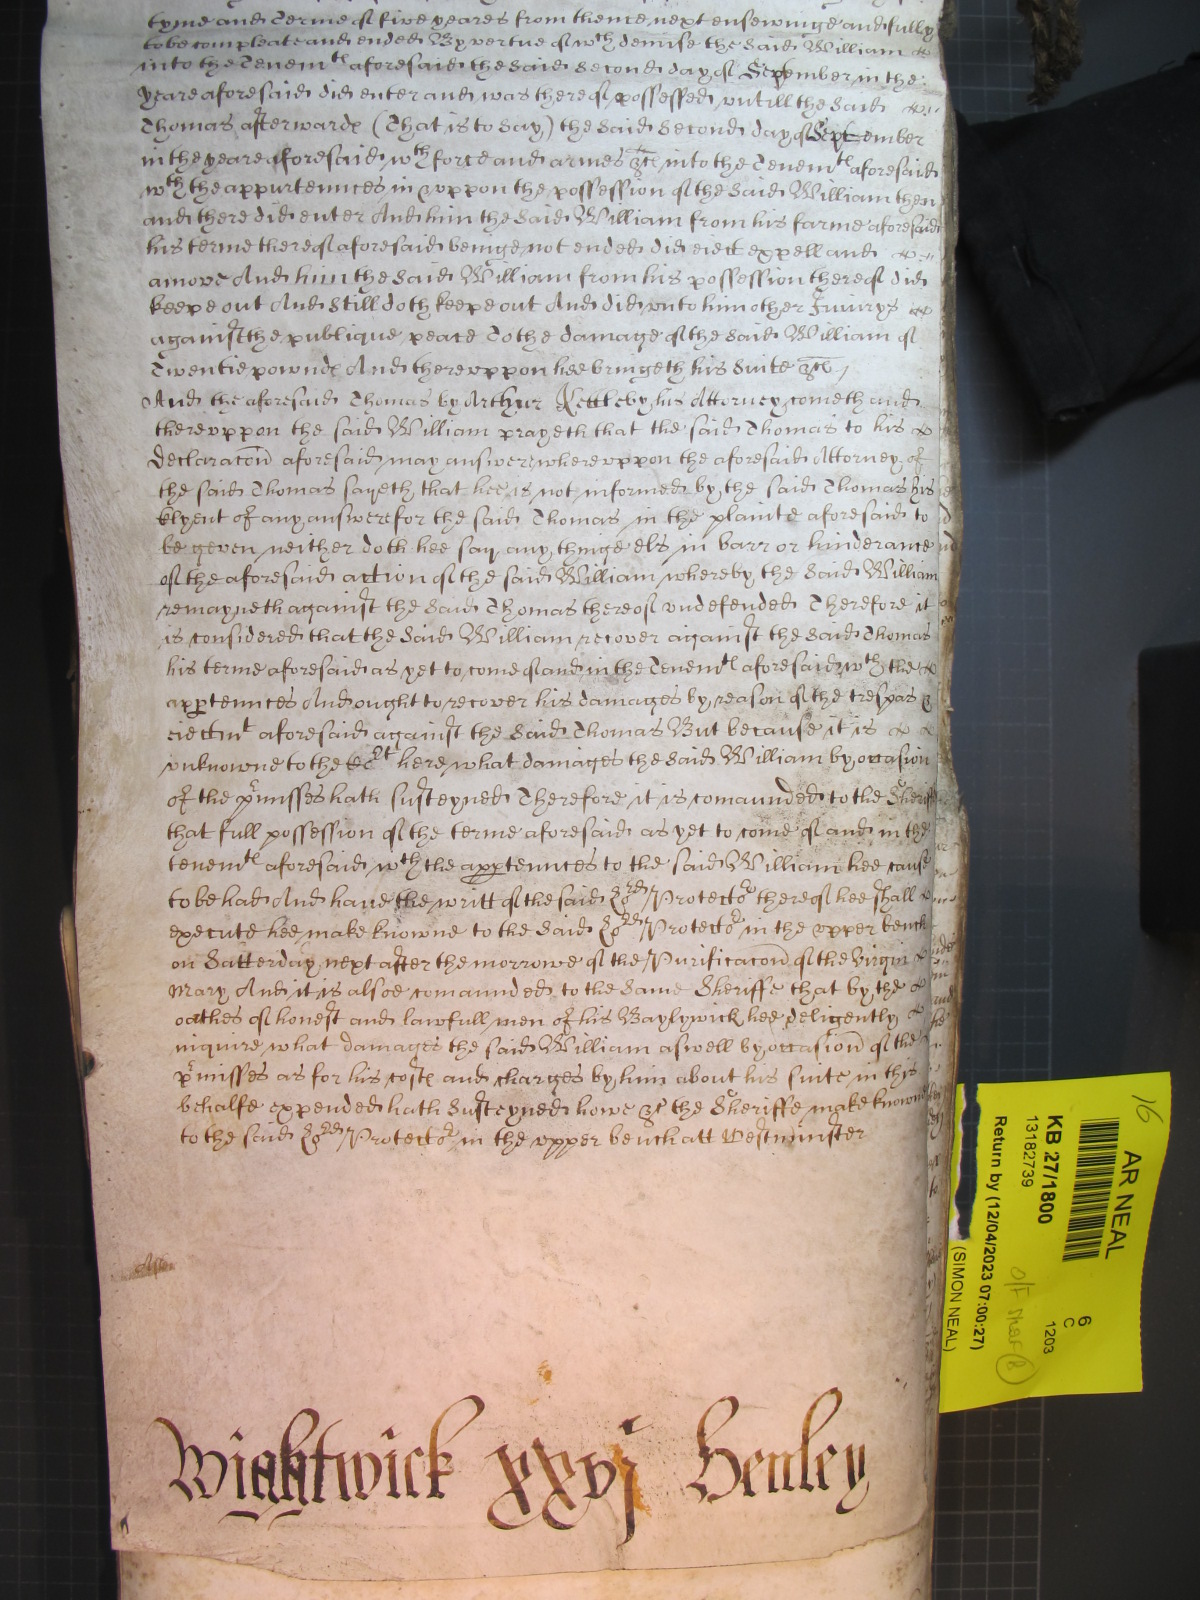 tyme and Terme of five yeares from thence next ensewinge and fully
to be compleate and ended By vertue of wch demise the said William
into the Tenemts aforesaid the said second day of September in the
yeare aforesaid did enter and was thereof possessed untill the said
Thomas afterwards (That is to say) the said second day of September
in the yeare aforesaid wth force and armes &c into the Tenemts aforesaid
wth the appurtennces in & vppon the possession of the said William then
and there did enter And him the said William from his farme aforesaid
his terme thereof aforesaid beinge not ended did eiect expell and
amove And him the said William from his possession thereof did
keepe out And still doth keepe out And did vnto him other Iniurys
against the publique peace To the damage of the said William of
Twentie pownds And therevppon hee bringeth his suite &c /
And the aforesaid Thomas by Arthur Kettleby his Attorney cometh and
therevppon the said William prayeth that the said Thomas to his
declaracon aforesaid may answer wherevppon the aforesaid Attorney of
the said Thomas sayeth that hee is not informed by the said Thomas his
klyent of any answere for the said Thomas in the plainte aforesaid to
be geven neither doth hee say any thinge els in barr or hinderance
of the aforesaid action of the said William whereby the said William
remayneth against the said Thomas thereof vndefended Therefore it
is considered that the said William recover against the said Thomas
his terme aforesaid as yet to come of and in the Tenemts aforesaid wth the
apptennces And ought to recover his damages by reason of the trespas &
eiectmt aforesaid against the said Thomas But because it is
vnknowne to the Cort here what damages the said William by occasion
of the pmisses hath susteyned Therefore it is comaunded to the Sheriff
that full possession of the terme aforesaid as yet to come of and in the
tenemts aforesaid wth the apptennces to the said William hee cause
to be had And have the writt of the said Lord Protector thereof hee shall
execute hee make knowne to the said Lord Protector in the vpper bench
on Satterday next after the morrowe of the Purificacon of the Virgin
Mary And it is alsoe comaunded to the same Sheriffe that by the
oathes of honest and lawfull men of his Baylywick hee deligently
inquire what damages the said William aswell by occasion of the
pmisses as for his costs and charges by him about his suite in this
behalfe expended hath susteyned howe &c the Sheriffe make knowne
to the said Lord Protector in the vpper bench att Westminster
Wightwick xxvj Henley
16
AR NEAL
KB 27/1800
13182739
Return by (12/04/2023 07:00:27)
(SIMON NEAL)
6
C
1203